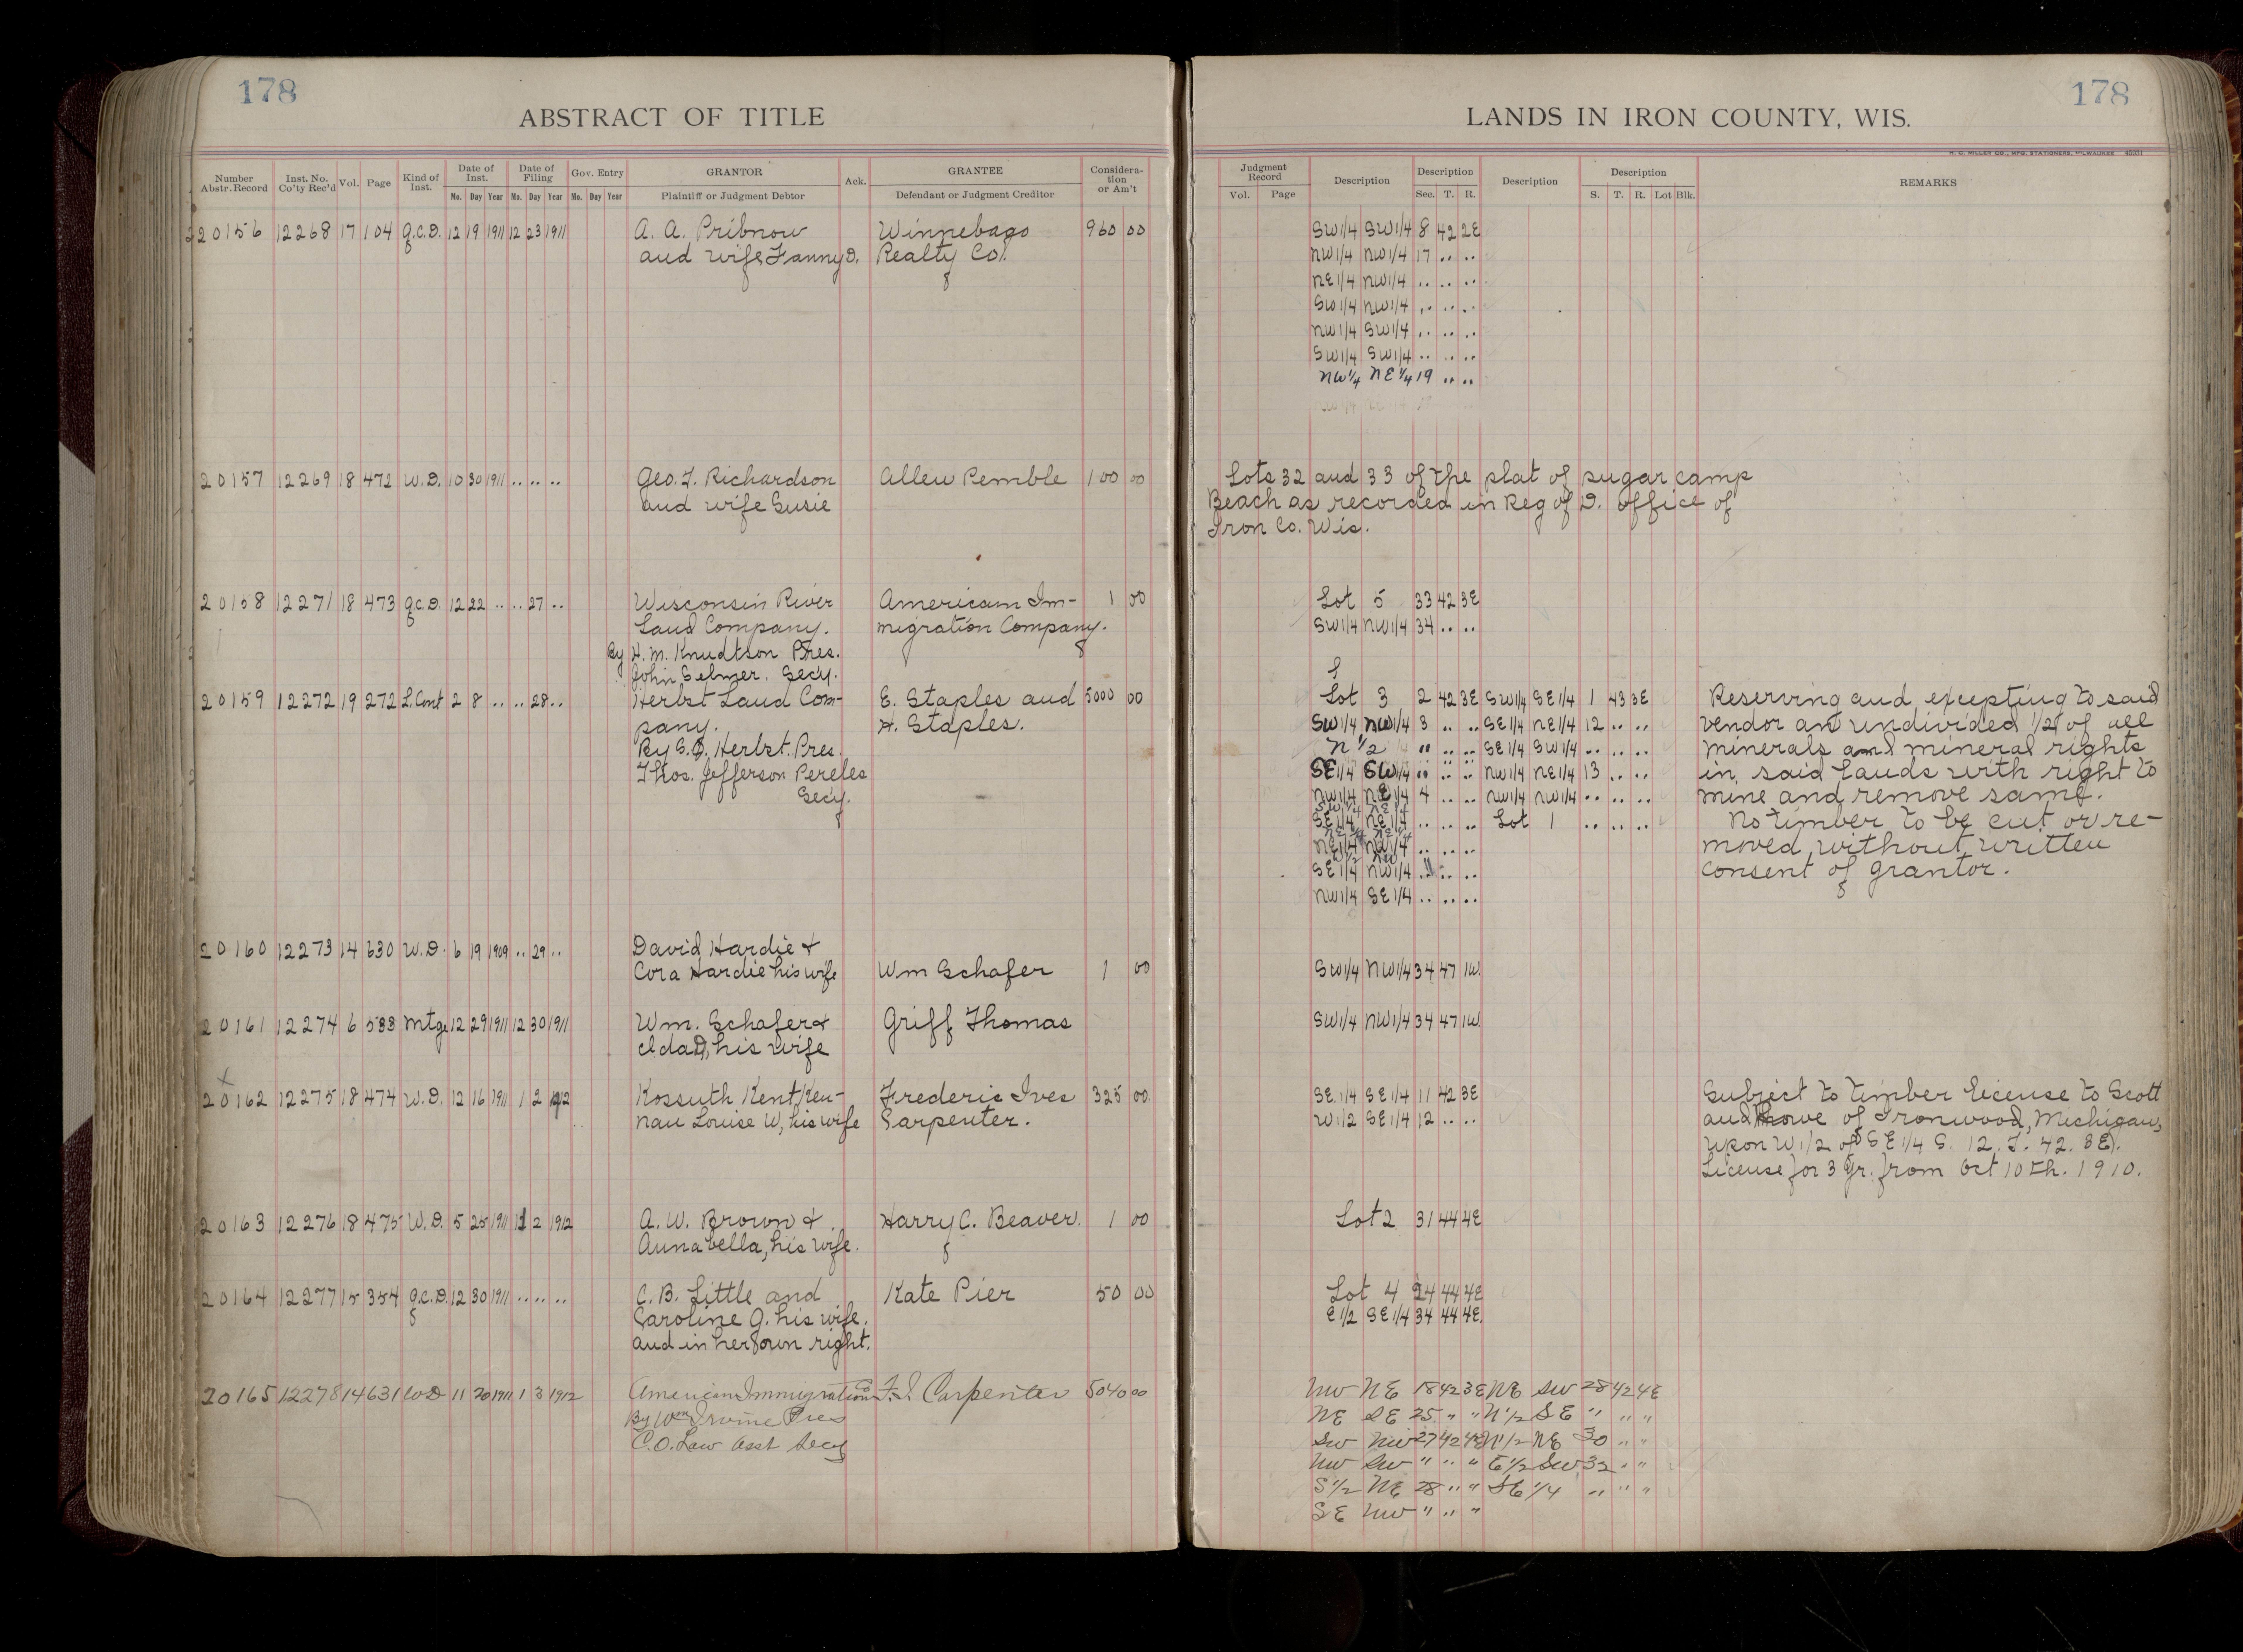 178
ABSTRACT OF TITLE
Number Abstr. Record | Inst. No. Co'ty Rec'd | Vol. | Page | Kind of Inst. | Date of Inst. Mo. Day Year | Date of Filing Mo. Day Year | Gov. Entry Mo. Day Year | GRANTOR Plaintiff or Judgment Debtor | Ack. | GRANTEE Defendant or Judgment Creditor | Considera-tion or Am't
20156 12268 17 104 Q.C.D. 12 19 1911 12 23 1911 A. A. Pribnow Winnebago 960 00
and wife Fanny D. Realty Co.
20157 12269 18 472 W.D. 10 30 1911 .. .. .. Geo. F. Richardson Allen Pemble 100 00
and wife Susie
20158 12271 18 473 Q.C.D. 12 22 .. .. 27 .. Wisconsin River American Im- 1 00
Land Company. migration Company.
By H. M. Knudtson Pres.
John Selmer. Secy.
20159 12272 19 272 L.Cont 2 8 .. .. 28 .. Herbst Land Com- E. Staples and 5000 00
pany. H. Staples.
By S.D. Herbst. Pres.
Thos. Jefferson Pereles
Secy.
20160 12273 14 630 W.D. 6 19 1909 .. 29 .. David Hardie &
Cora Hardie his wife Wm Schafer 1 00
20161 12274 6 588 Mtge 12 29 1911 12 30 1911 Wm. Schafer & Griff Thomas
Ida D, his wife
x
20162 12275 18 474 W.D. 12 16 1911 1 2 1912 Kossuth Kent Ken- Frederic Ives 325 00
nan Louise W, his wife Carpenter.
20163 12276 18 475 W.D. 5 25 1911 1 2 1912 A. W. Brown & Harry C. Beaver. 1 00
Annabella, his wife.
20164 12277 15 354 Q.C.D. 12 30 1911 .. .. .. C. B. Little and Kate Pier 50 00
Caroline G. his wife.
and in her own right.
20165 12278 14 631 WD 11 20 1911 1 3 1912 American Immigration Co F. I. Carpenter 5040 00
By Wm Irvine Pres
C. O. Law Asst Secy
178
LANDS IN IRON COUNTY, WIS.
H. C. MILLER CO., MFG. STATIONERS, MILWAUKEE
Judgment Record Vol. Page | Description | Description Sec. T. R. | Description | Description S. T. R. Lot Blk. | REMARKS
SW1/4 SW1/4 8 42 2E
NW1/4 NW1/4 17 .. ..
NE1/4 NW1/4 .. .. ..
SW1/4 NW1/4 .. .. ..
NW1/4 SW1/4 .. .. ..
SW1/4 SW1/4 .. .. ..
NW1/4 NE1/4 19 .. ..
Lots 32 and 33 of the plat of Sugar Camp
Beach as recorded in Reg of D. office of
Iron Co. Wis.
Lot 5 33 42 3E
SW1/4 NW1/4 34 .. ..
Lot 3 2 42 3E SW1/4 SE1/4 1 43 3E Reserving and excepting to said
SW1/4 NW1/4 3 .. .. SE1/4 NE1/4 12 .. .. vendor an undivided 1/2 of all
N 1/2 " .. .. SE1/4 SW1/4 .. .. .. minerals and mineral rights
SE1/4 SW1/4 .. .. .. NW1/4 NE1/4 13 .. .. in said lands with right to
NW1/4 NE1/4 4 .. .. NW1/4 NW1/4 .. .. .. mine and remove same.
SE1/4 NE1/4 .. .. .. Lot 1 .. .. .. No timber to be cut or re-
NE1/4 NW1/4 .. .. .. moved without written
SE1/4 NW1/4 .. .. .. consent of grantor.
NW1/4 SE1/4 .. .. ..
SW1/4 NW1/4 34 47 1W.
SW1/4 NW1/4 34 47 1W.
SE1/4 SE1/4 11 42 3E Subject to timber license to Scott
W1/2 SE1/4 12 .. .. and Howe of Ironwood, Michigan,
upon W1/2 of SE1/4 S. 12. T. 42. 3E).
License for 3 Yr. from Oct 10th. 1910.
Lot 2 31 44 4E
Lot 4 24 44 4E
E1/2 SE1/4 34 44 4E.
NW NE 18 42 3E NE SW 28 42 4E
NE SE 25 " " N1/2 SE " " "
SW NW 27 42 4E N1/2 NE 30 " "
NW SW " " " E1/2 SW 32 " "
S1/2 NE 28 " " SE1/4 " " "
SE NW " " "